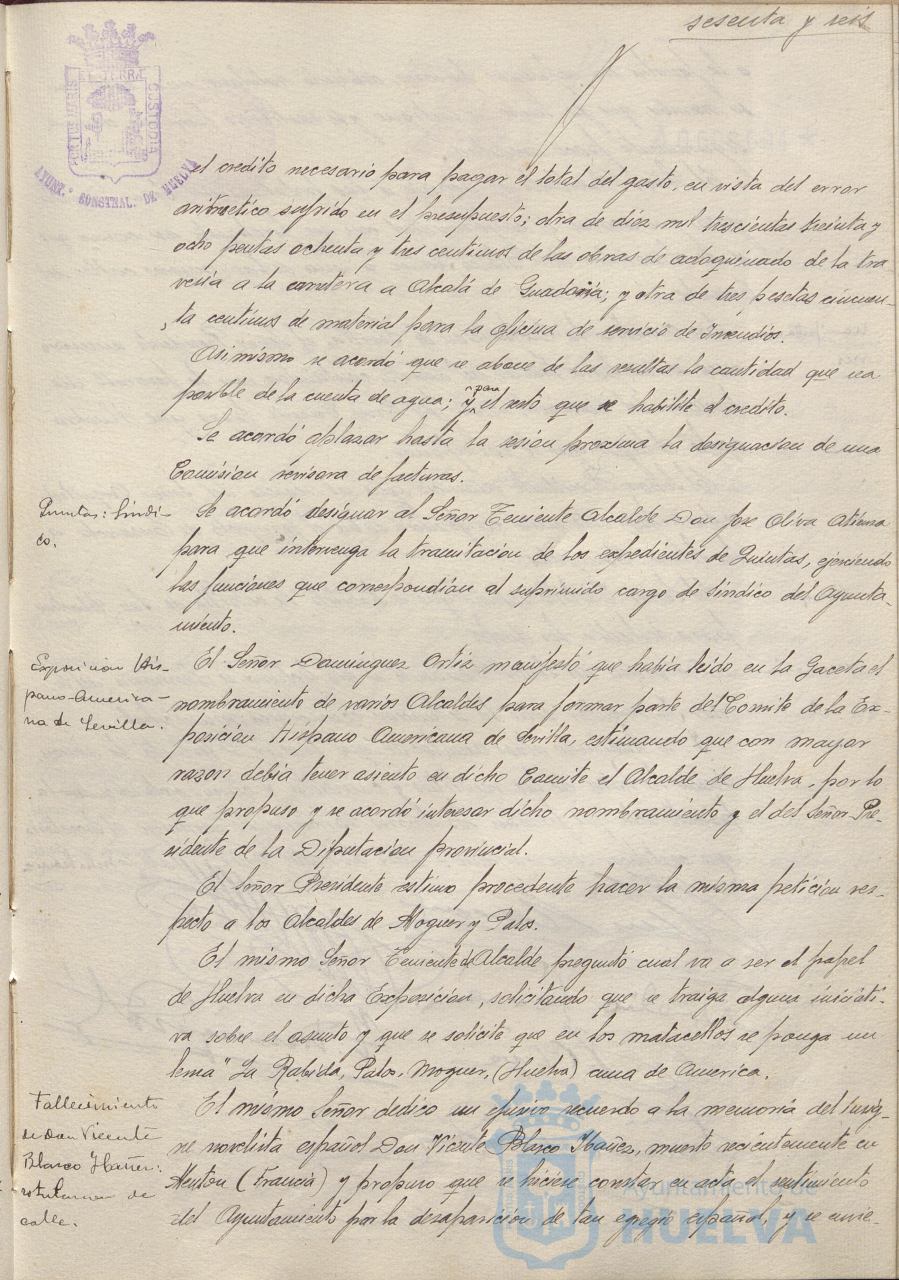 sesenta y seis
PORTUS MARIS ET TERRAE CUSTODIA
AYUNT.º CONSTNAL. DE HUELVA
el credito necesario para pagar el total del gasto, en vista del error
aritmetico sufrido en el presupuesto; otra de diez mil trescientas treinta y
ocho pesetas ochenta y tres centimos de las obras de adoquinado de la tra
vesia a la carretera a Alcalá de Guadaira; y otra de tres pesetas cincuen-
ta centimos de material para la oficina de servicio de Incendios.
Asimismo se acordó que se abone de las resultas la cantidad que sea
posible de la cuenta de agua; y para el resto que se habilite el credito.
Se acordó aplazar hasta la sesion proxima la designacion de una
Comision revisora de facturas.
Quintas: Síndi-
co.
Se acordó designar al Señor Teniente Alcalde Don José Oliva Atienza
para que intervenga la tramitacion de los expedientes de Quintas, ejerciendo
las funciones que correspondian al suprimido cargo de Sindico del Ayunta-
miento.
Exposicion His-
pano-America-
na de Sevilla.
El Señor Dominguez Ortiz manifestó que habia leido en la Gaceta el
nombramiento de varios Alcaldes para formar parte del Comite de la Ex-
posicion Hispano Americana de Sevilla, estimando que con mayor
razon debia tener asiento en dicho Comite el Alcalde de Huelva, por lo
que propuso y se acordó interesar dicho nombramiento y el del Señor Pre-
sidente de la Diputacion provincial.
El Señor Presidente estimo procedente hacer la misma peticion res-
pecto a los Alcaldes de Moguer y Palos.
El mismo Señor Teniente de Alcalde preguntó cual va a ser el papel
de Huelva en dicha Exposicion, solicitando que se traiga alguna iniciati-
va sobre el asunto y que se solicite que en los matasellos se ponga un
lema "La Rabida, Palos, Moguer, (Huelva) cuna de America.
Fallecimiento
de Don Vicente
Blasco Ibañez:
rotulacion de
calle.
El mismo Señor dedico un efusivo recuerdo a la memoria del insig-
ne novelista español Don Vicente Blasco Ibañez, muerto recientemente en
Menton (Francia) y propuso que se hiciese constar en acta el sentimiento
del Ayuntamiento por la desaparicion de tan egregio español, y se
Ayuntamiento de
HUELVA